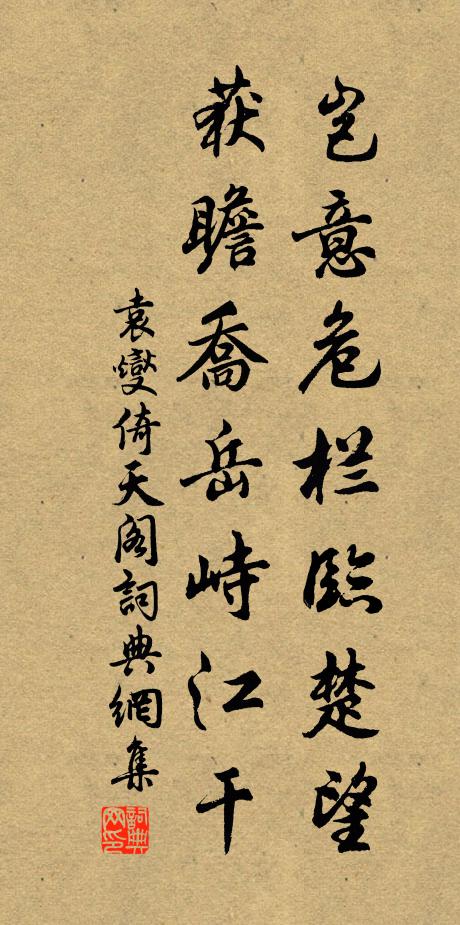 岂意危栏临楚望
获瞻乔岳峙江干
袁燮倚天阁词典网集
词典网印